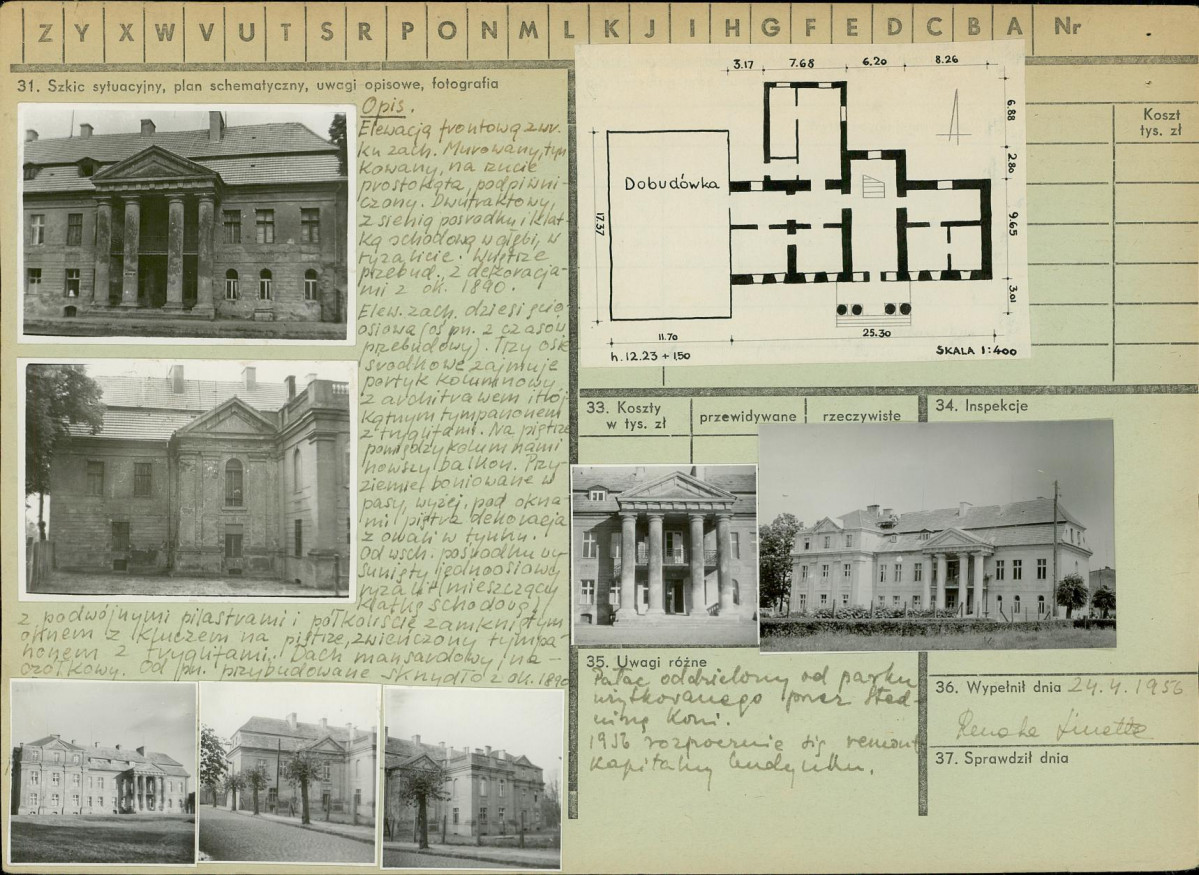 Z Y X W V U T S R P O N M L K J I H G F E D C B A Nr
31. Szkic sytuacyjny, plan schematyczny, uwagi opisowe, fotografia
Opis.
Elewacją frontową zwr.
ku zach. Murowany, tyn
kowany, na rzucie
prostokąta, podpiwni-
czony. Dwutraktowy,
z sienią pośrodku i klat
ką schodową w głębi, w
ryzalicie. Wnętrze
przebud. z dekoracja-
mi z ok. 1890.
Elew. zach. dziesięcio
osiowa (oś pn. z czasów
przebudowy). Trzy osie
środkowe zajmuje
portyk kolumnowy
z architrawem i trój
kątnym tympanonem
z tryglifami. Na piętrze
pomiędzy kolumnami
nowszy balkon. Przy
ziemie boniowane w
pasy, wyżej, pod okna
mi piętra dekoracja
z owali w tynku.
Od wsch. pośrodku wy
sunięty jednoosiowy
ryzalit mieszczący
klatkę schodową,
z podwójnymi pilastrami i półkoliście zamkniętym
oknem z kluczem na piętrze, zwieńczony tympa-
nonem z tryglifami. Dach mansardowy, na-
czółkowy. Od pn. przybudowane skrzydło z ok. 1890
3.17 7.68 6.20 8.26
6.88
2.80
9.65
3.01
17.37
Dobudówka
11.70 25.30
h. 12.23 + 150 SKALA 1:400
Koszt
tys. zł
33. Koszty
w tys. zł
przewidywane rzeczywiste
34. Inspekcje
35. Uwagi różne
Pałac oddzielony od parku
użytkowanego przez Stad-
ninę Koni.
1956 rozpocznie się remont
kapitalny budynku.
36. Wypełnił dnia 24.4.1956
Renata
37. Sprawdził dnia